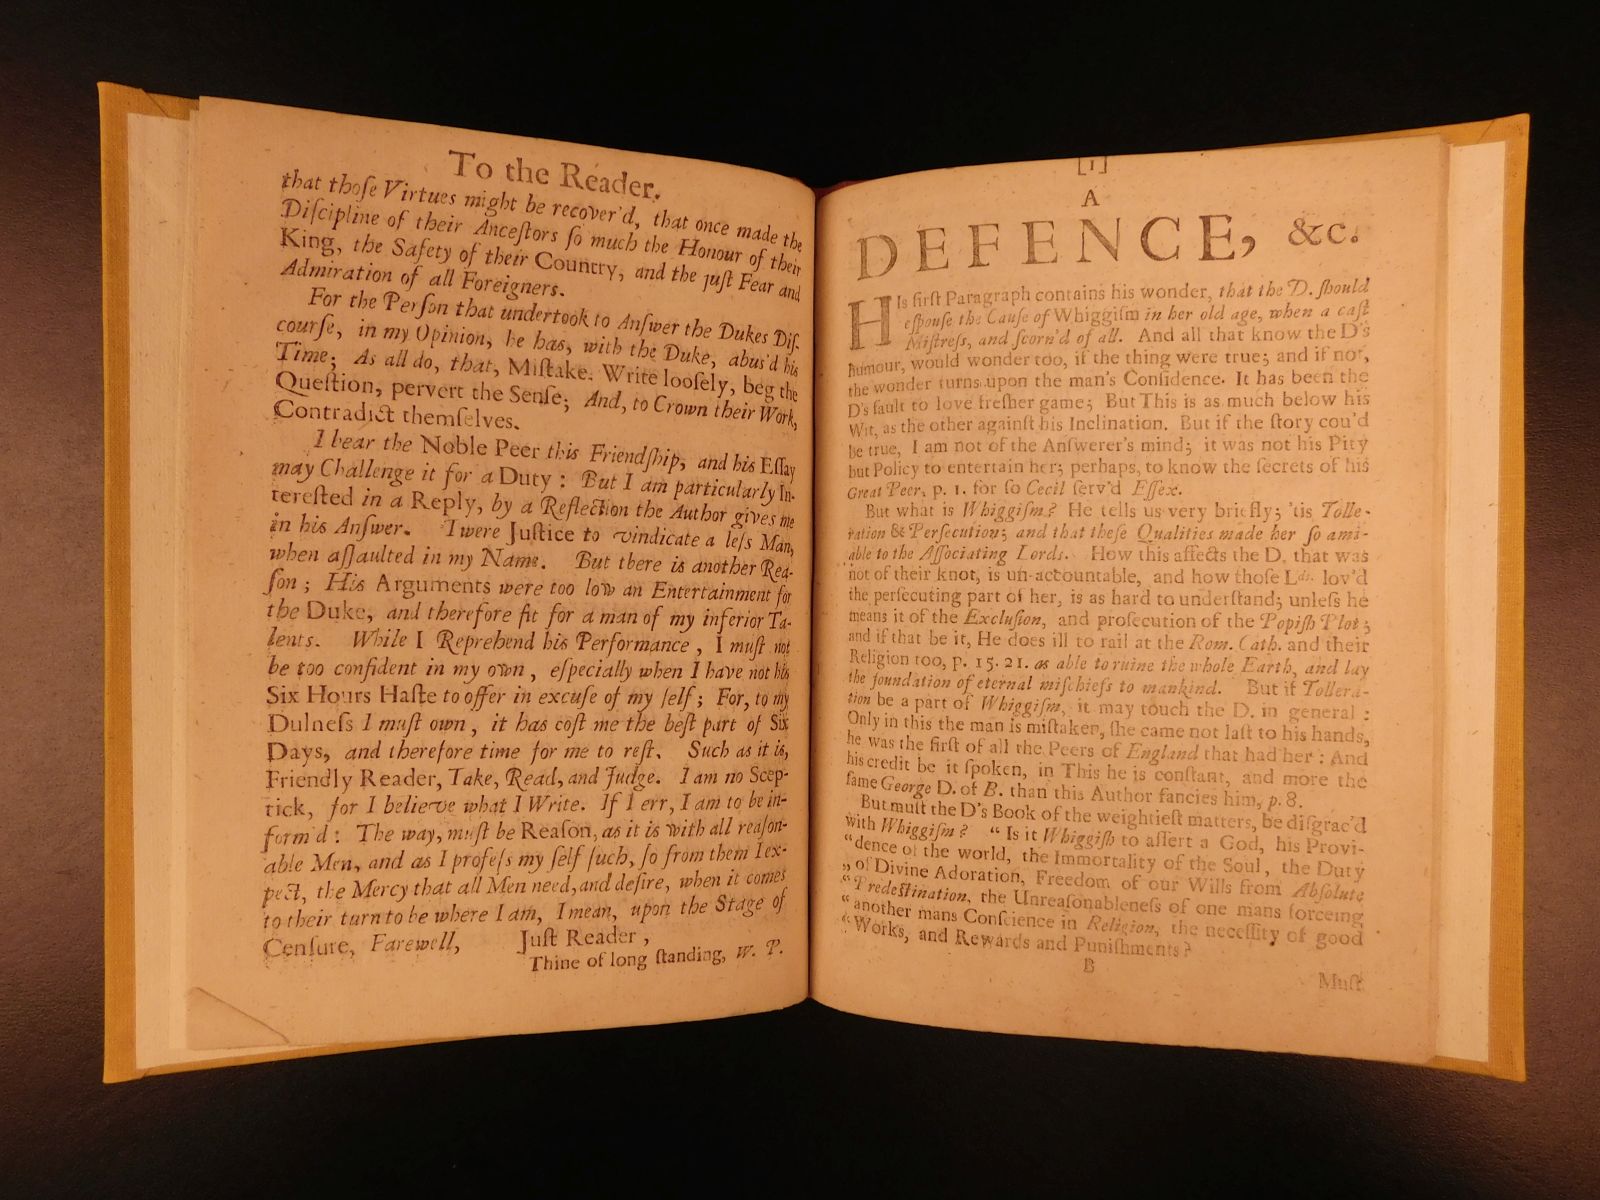 To the Reader.
that thoſe Virtues might be recover'd, that once made the
Diſcipline of their Anceſtors ſo much the Honour of their
King, the Safety of their Country, and the juſt Fear and
Admiration of all Foreigners.
For the Perſon that undertook to Anſwer the Dukes Diſ-
courſe, in my Opinion, he has, with the Duke, abus'd his
Time; As all do, that, Miſtake. Write looſely, beg the
Queſtion, pervert the Senſe; And, to Crown their Work,
Contradict themſelves.
I bear the Noble Peer this Friendſhip, and his Eſſay
may Challenge it for a Duty: But I am particularly In-
tereſted in a Reply, by a Reflection the Author gives me
in his Anſwer. 'Twere Juſtice to vindicate a leſs Man,
when aſſaulted in my Name. But there is another Rea-
ſon; His Arguments were too low an Entertainment for
the Duke, and therefore fit for a man of my inferior Ta-
lents. While I Reprehend his Performance, I muſt not
be too confident in my own, eſpecially when I have not his
Six Hours Haſte to offer in excuſe of my ſelf; For, to my
Dulneſs I muſt own, it has coſt me the beſt part of Six
Days, and therefore time for me to reſt. Such as it is,
Friendly Reader, Take, Read, and Judge. I am no Scep-
tick, for I believe what I Write. If I err, I am to be in-
form'd: The way, muſt be Reaſon, as it is with all reaſon-
able Men, and as I profeſs my ſelf ſuch, ſo from them I ex-
pect, the Mercy that all Men need, and deſire, when it comes
to their turn to be where I am, I mean, upon the Stage of
Cenſure, Farewell, Juſt Reader,
Thine of long ſtanding, W. P.
[1]
A
DEFENCE, &c.
HIs firſt Paragraph contains his wonder, that the D. ſhould
eſpouſe the Cauſe of Whiggiſm in her old age, when a caſt
Miſtreſs, and ſcorn'd of all. And all that know the D's
humour, would wonder too, if the thing were true; and if not,
the wonder turns upon the man's Confidence. It has been the
D's fault to love freſher game; But This is as much below his
Wit, as the other againſt his Inclination. But if the ſtory cou'd
be true, I am not of the Anſwerer's mind; it was not his Pity
but Policy to entertain her; perhaps, to know the ſecrets of his
Great Peer, p. 1. for ſo Cecil ſerv'd Eſſex.
But what is Whiggiſm? He tells us very briefly; 'tis Tolle-
ration & Perſecution; and that theſe Qualities made her ſo ami-
able to the Aſſociating Lords. How this affects the D. that was
not of their knot, is un-accountable, and how thoſe Lds. lov'd
the perſecuting part of her, is as hard to underſtand; unleſs he
means it of the Excluſion, and proſecution of the Popiſh Plot;
and if that be it, He does ill to rail at the Rom. Cath. and their
Religion too, p. 15. 21. as able to ruine the whole Earth, and lay
the foundation of eternal miſchiefs to mankind. But if Tollera-
tion be a part of Whiggiſm, it may touch the D. in general:
Only in this the man is miſtaken, ſhe came not laſt to his hands,
he was the firſt of all the Peers of England that had her: And
his credit be it ſpoken, in This he is conſtant, and more the
ſame George D. of B. than this Author fancies him, p. 8.
But muſt the D's Book of the weightieſt matters, be diſgrac'd
with Whiggiſm? “ Is it Whiggiſh to aſſert a God, his Provi-
“ dence of the world, the Immortality of the Soul, the Duty
„ of Divine Adoration, Freedom of our Wills from Abſolute
“ Predeſtination, the Unreaſonableneſs of one mans forceing
“ another mans Conſcience in Religion, the neceſſity of good
“ Works, and Rewards and Puniſhments?
B
Muſt